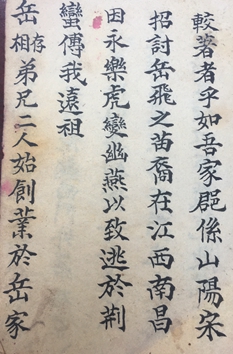 較著者乎如吾家郡係山陽宋
招討岳飛之苗裔在江西南昌
因永樂虎變幽燕以致逃於荆
蠻傳我遠祖
岳存相弟兄二人始創業於岳家